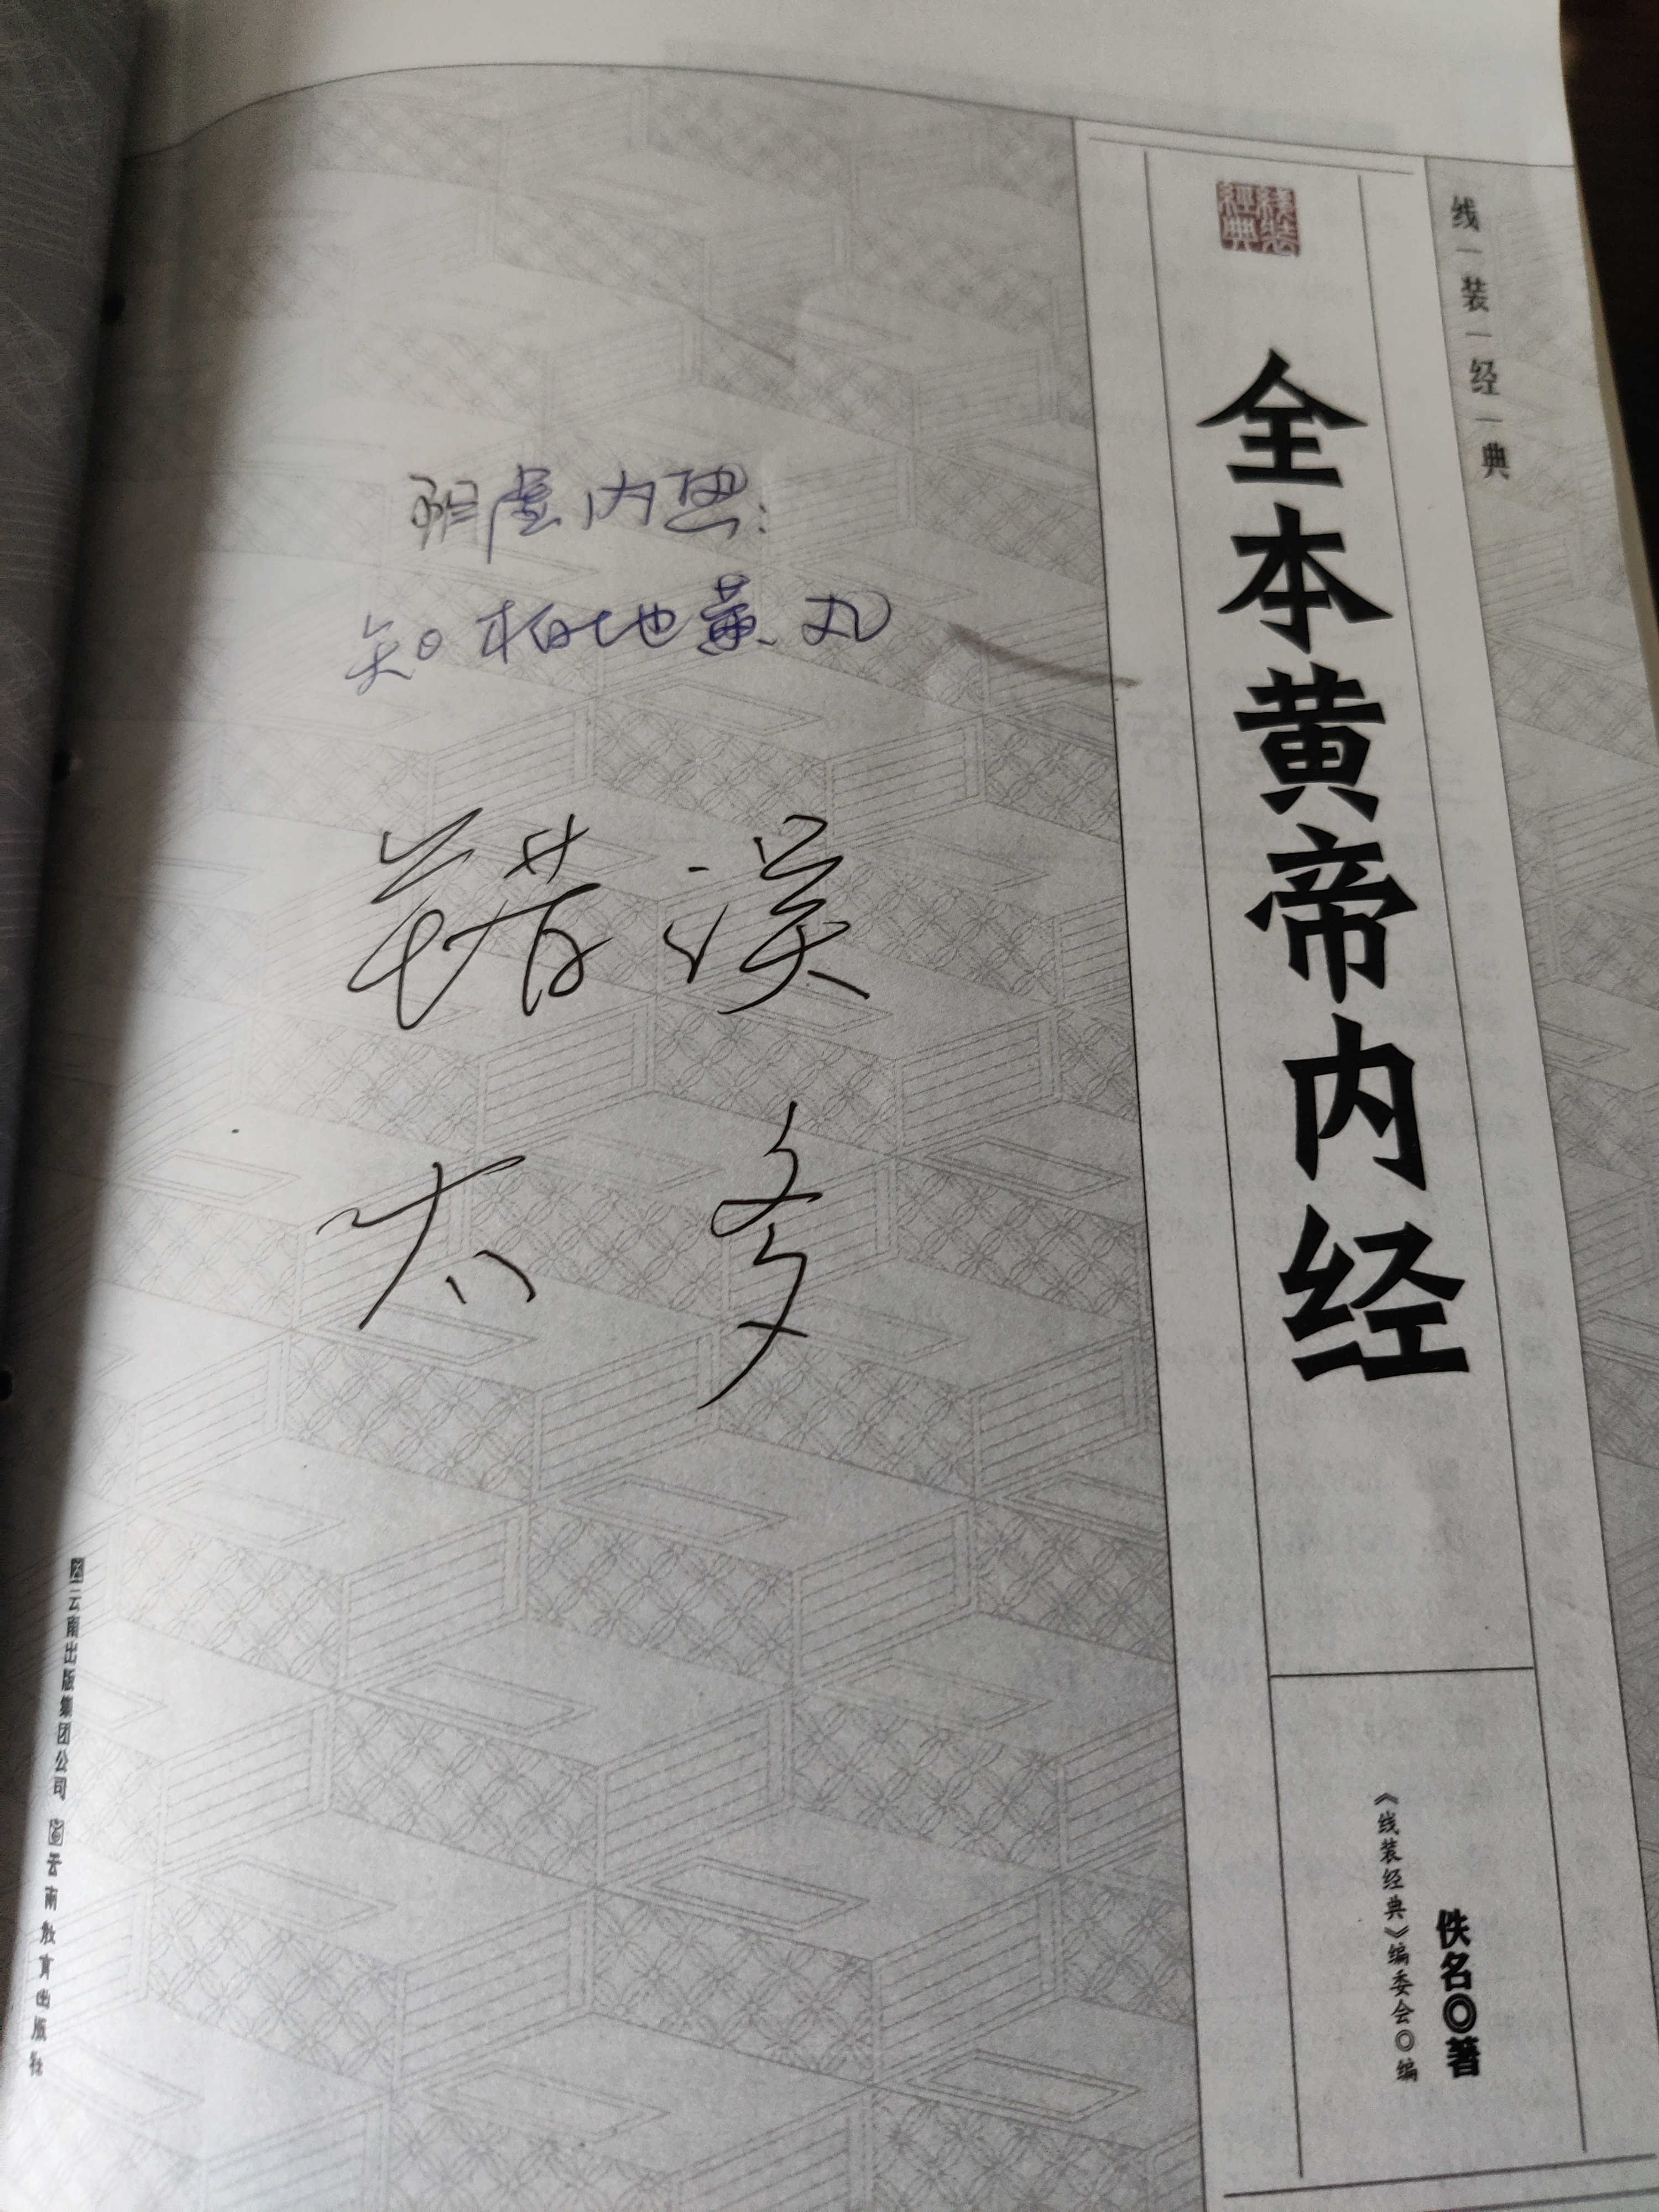 线装经典
線装
經典
全本黄帝内经
佚名◎著
《线装经典》编委会◎编
阴虚内热:
知柏地黄丸
错误
太多
云南出版集团公司 云南教育出版社